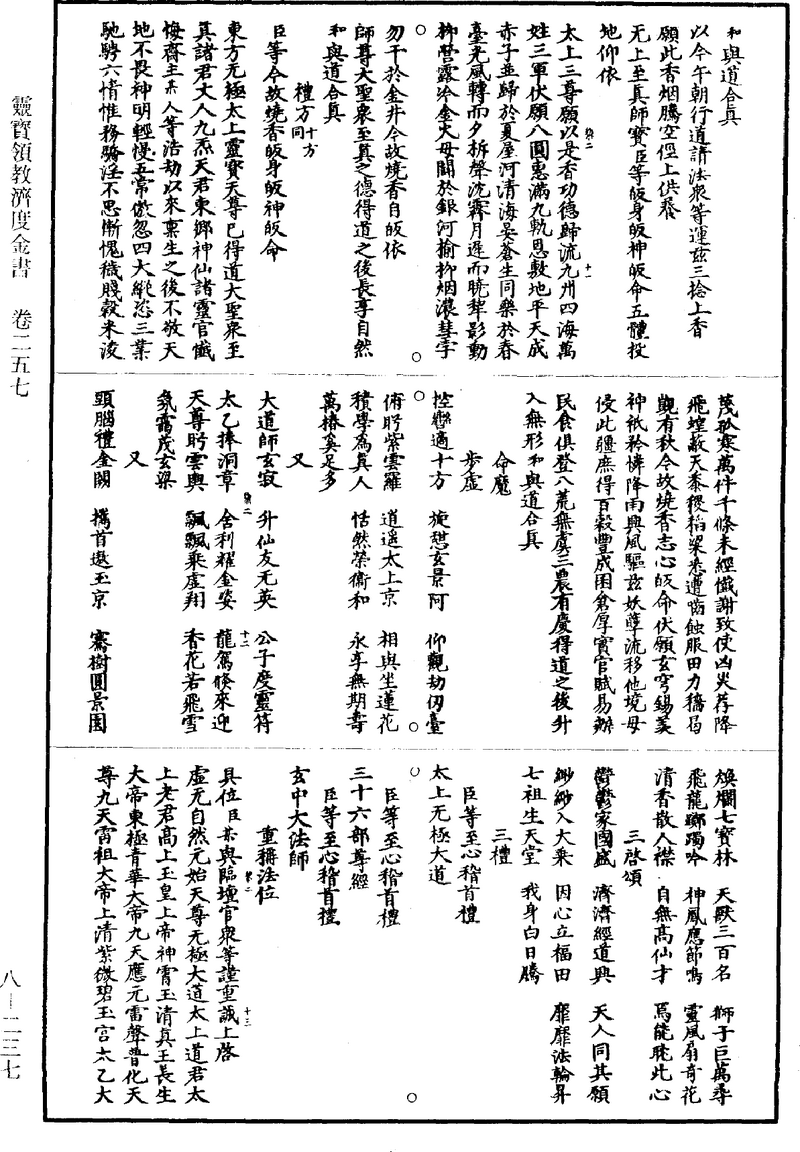 和與道合真
以今午朝行道請法衆等運兹三捻上香
願此香烟騰空徑上供養
无上至真師寶臣等皈身皈神皈命五體投
地仰依
太上三尊願以是香功德歸流九州四海萬
姓三軍伏願八圓惠滿九軌恩敷地平天成
赤子並歸於夏屋河清海晏蒼生同樂於春
臺光風轉而夕柝聲沈霽月遲而曉犂影動
柳營露冷金火毋關於銀河榆柳烟濃彗孛
勿干於金井今故燒香自皈依
師尊大聖衆至真之德得道之後長享自然
和與道合真
禮方十方同
臣等今故燒香皈身皈神皈命
東方无極太上靈寶天尊已得道大聖衆至
真諸君丈人九炁天君東鄉神仙諸靈官懺
悔齋主某人等浩劫以來稟生之後不敬天
地不畏神明輕慢五常傲忽四大縱恣三業
馳騁六情惟務驕淫不思慚愧穢賤穀米淩
蔑孤寒萬件千條未經懺謝致使凶災荐降
飛蝗蔽天黍稷稻粱悉遭嚙蝕服田力穡曷
觀有秋今故燒香志心皈命伏願玄穹錫羙
神祇矜憐降雨興風驅兹妖孽流移他境毋
侵此疆庶得百穀豐成囷倉厚實官賦易辦
民食俱登八荒無虞三農有慶得道之後升
入無形和與道合真
命魔
步虛
控轡適十方　旋憩玄景阿　仰觀劫仞臺
俯眄紫雲羅　逍遥太上京　相與坐蓮花
積學爲真人　恬然榮衛和　永享無期壽
萬椿奚足多
又
大道師玄寂　升仙友无英　公子度靈符
太乙捧洞章　舍利耀金姿　龍駕欻來迎
天尊眄雲輿　飄飄乘虛翔　香花若飛雪
氛靄茂玄梁
又
頭腦禮金闕　攜首遨玉京　騫樹圓景園
煥爛七寶林　天獸三百名　獅子巨萬尋
飛龍躑躅吟　神鳳應節鳴　靈風扇奇花
清香散人襟　自無高仙才　焉能耽此心
三啓頌
鬱鬱家國盛　濟濟經道興　天人同其願
緲緲入大乘　因心立福田　靡靡法輪昇
七祖生天堂　我身白日騰
三禮
臣等至心稽首禮
太上无極大道
臣等至心稽首禮
三十六部尊經
臣等至心稽首禮
玄中大法師
重稱法位
具位臣某與臨壇官衆等謹重誠上啓
虛无自然元始天尊无極大道太上道君太
上老君高上玉皇上帝神霄玉清真王長生
大帝東極青華大帝九天應元雷聲普化天
尊九天雷祖大帝上清紫微碧玉宫太乙大
靈寶領教濟度金書　卷二五七
八—二三七